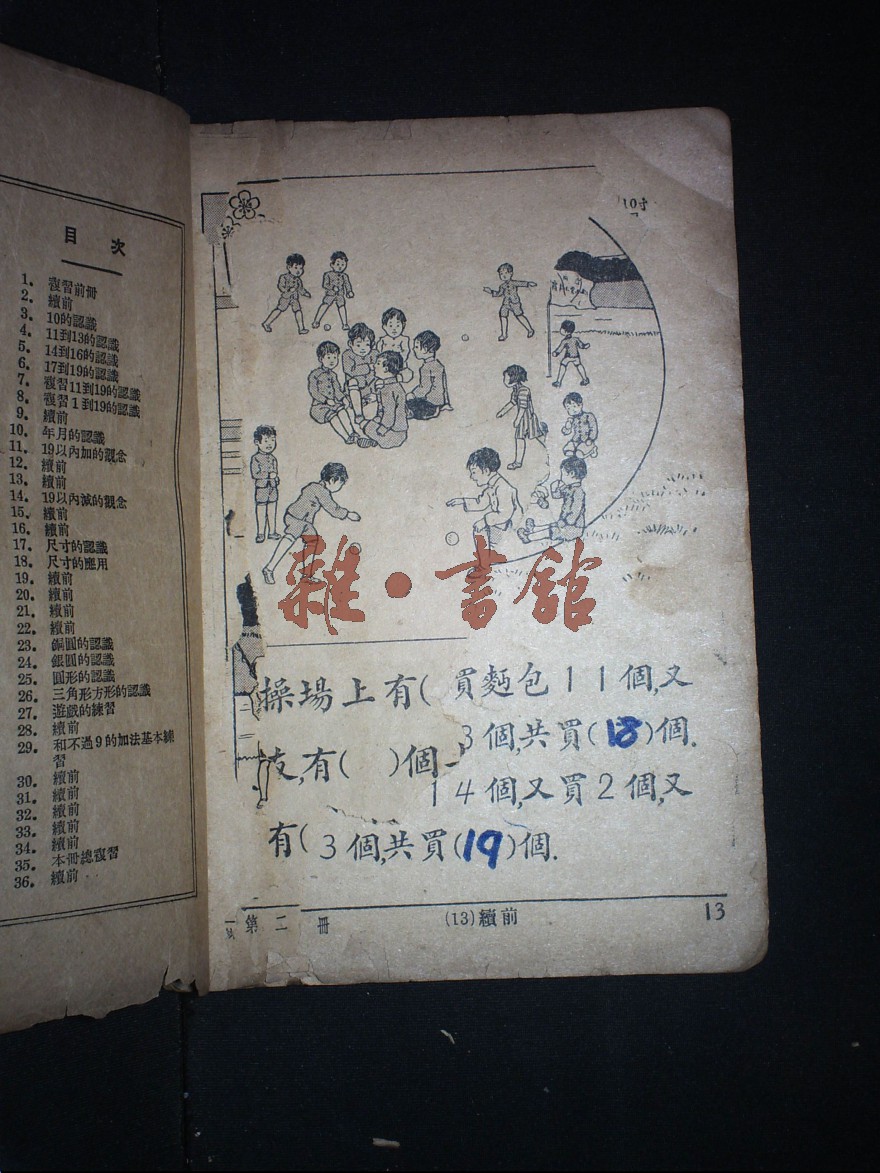 目次
1. 復習前冊
2. 續前
3. 10的認識
4. 11到13的認識
5. 14到16的認識
6. 17到19的認識
7. 復習11到19的認識
8. 復習1到19的認識
9. 續前
10. 年月的認識
11. 19以內加的觀念
12. 續前
13. 續前
14. 19以內減的觀念
15. 續前
16. 續前
17. 尺寸的認識
18. 尺寸的應用
19. 續前
20. 續前
21. 續前
22. 續前
23. 銅圓的認識
24. 銀圓的認識
25. 圓形的認識
26. 三角形方形的認識
27. 遊戲的練習
28. 續前
29. 和不過9的加法基本練
習
30. 續前
31. 續前
32. 續前
33. 續前
34. 續前
35. 本冊總復習
36. 續前
10寸
雜·書館
操場上有( 買麵包11個,又
3個,共買(18)個.
友,有( )個
14個,又買2個,又
有( 3個,共買(19)個.
第二冊 (13)續前 13